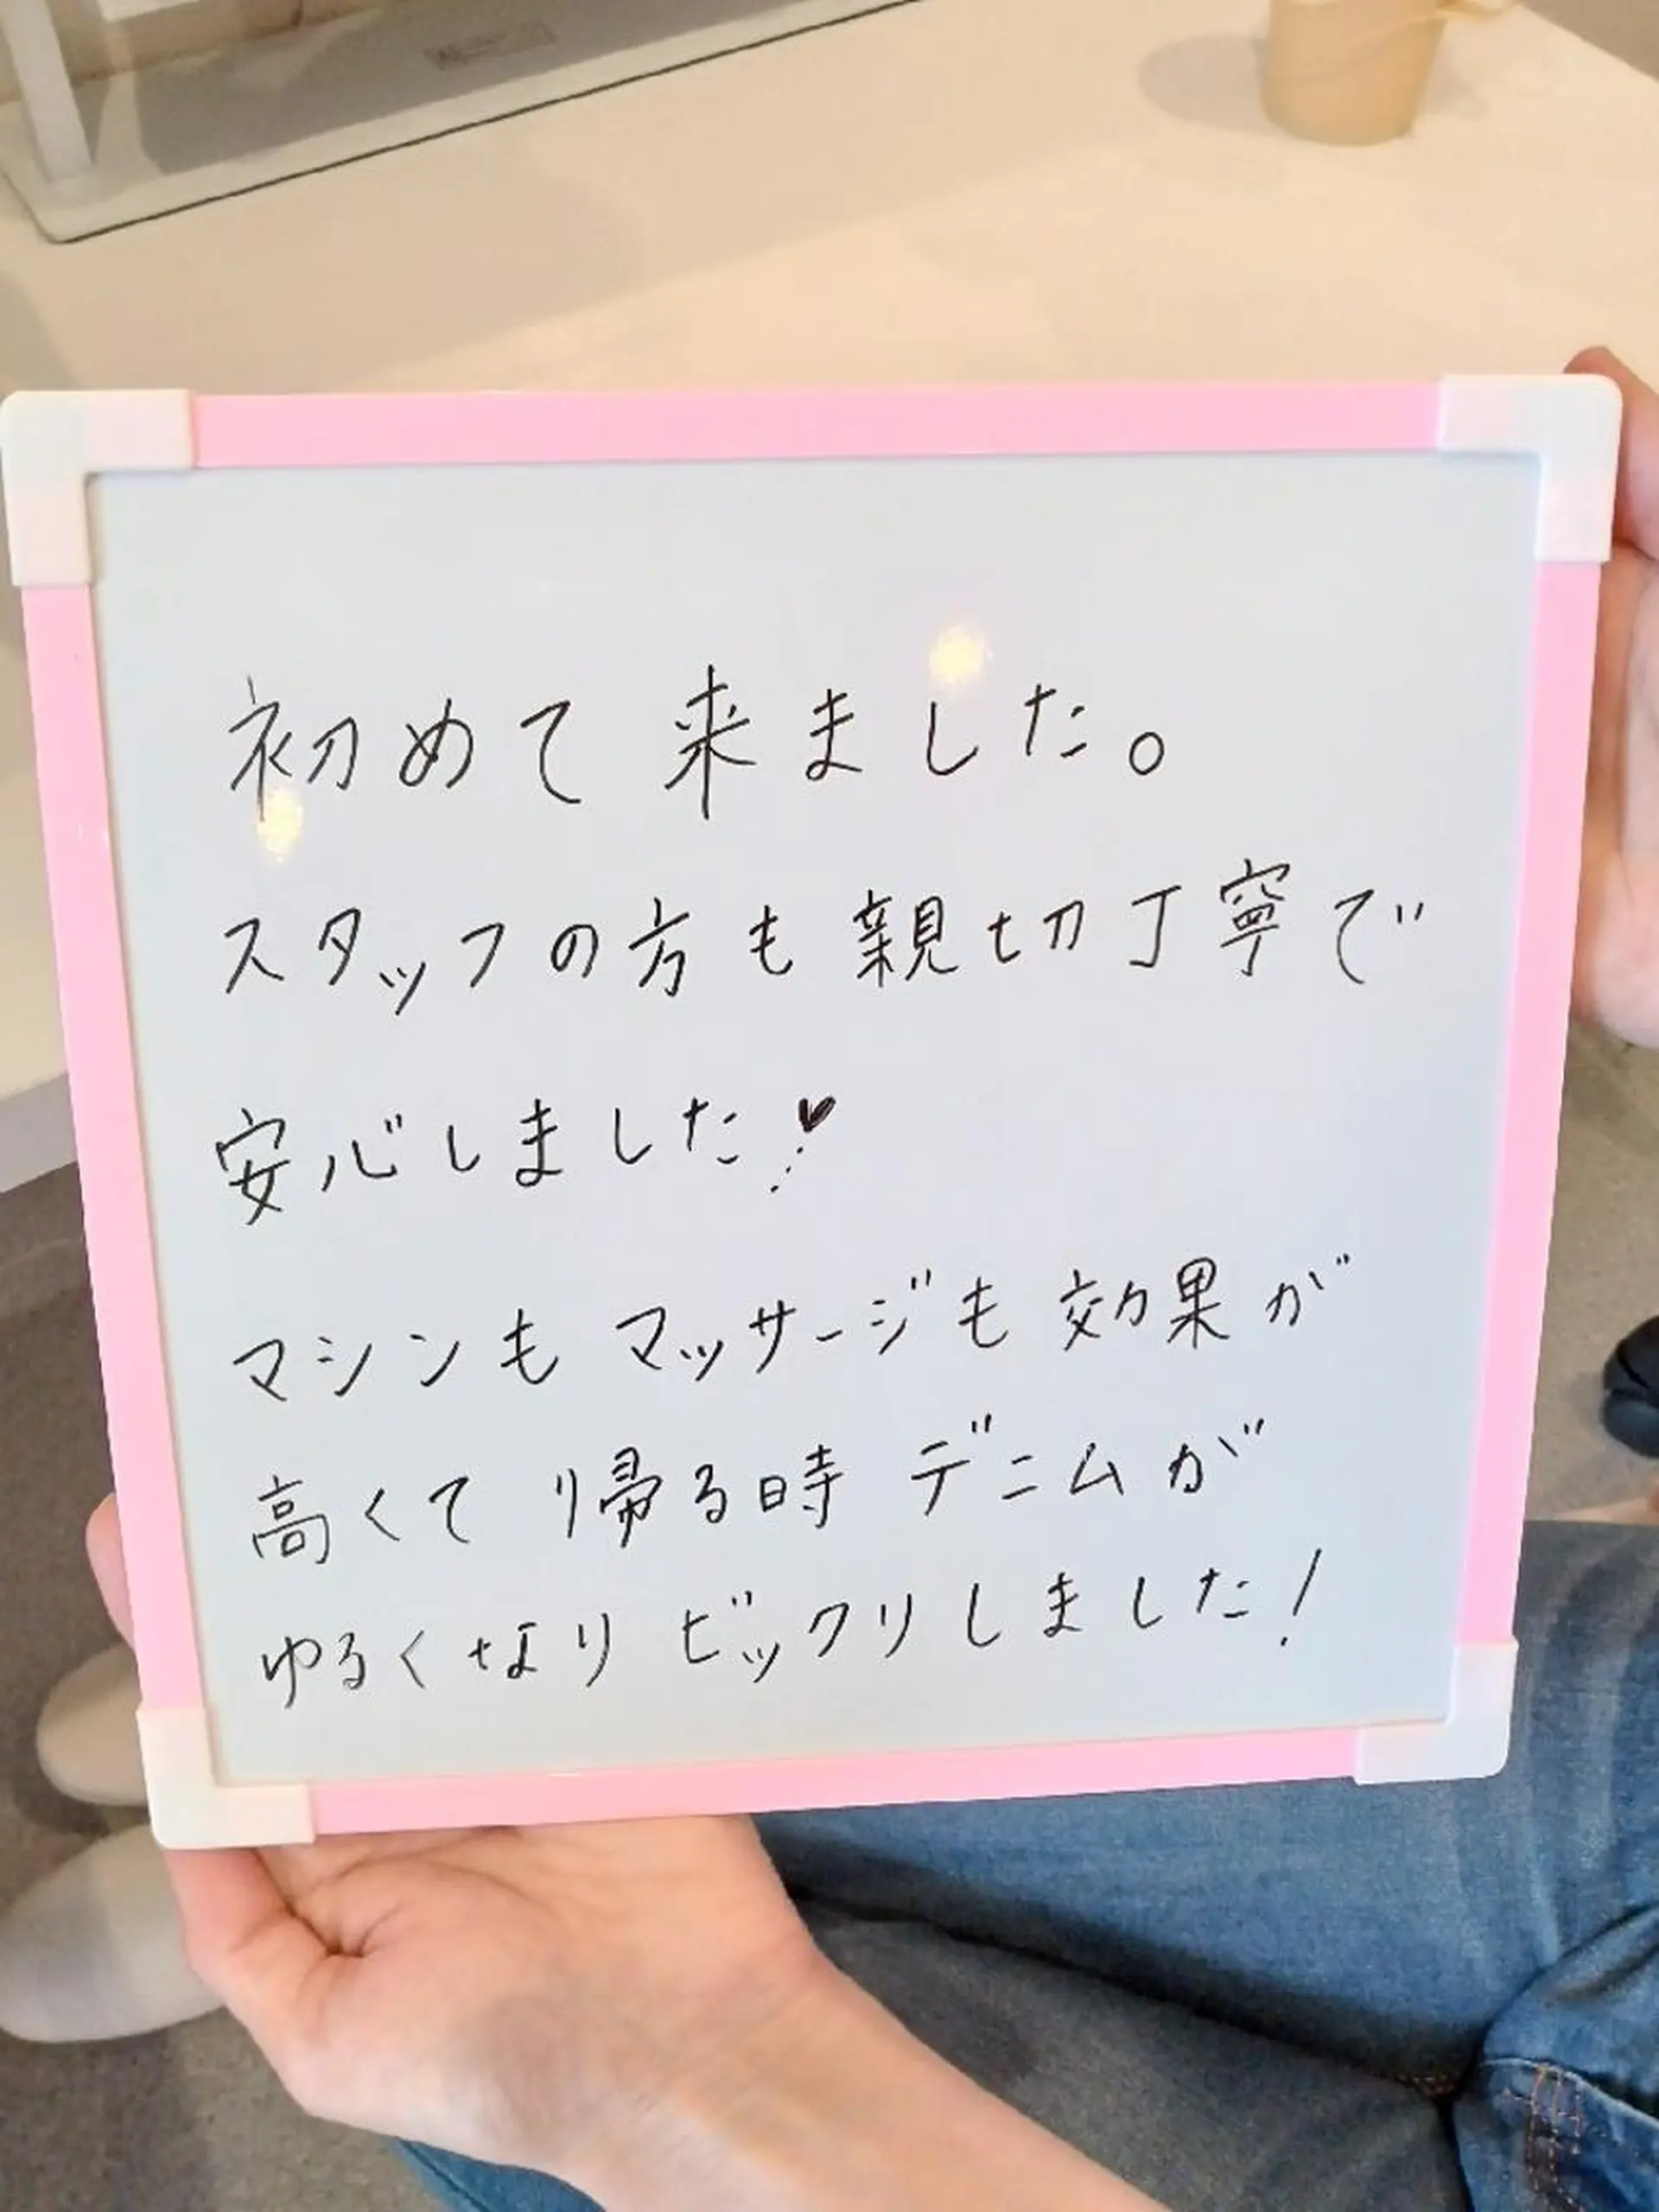 初めて来ました。
スタッフの方も親切丁寧で
安心しました♥
マシンもマッサージも効果が
高くて帰る時デニムが
ゆるくなりビックリしました!